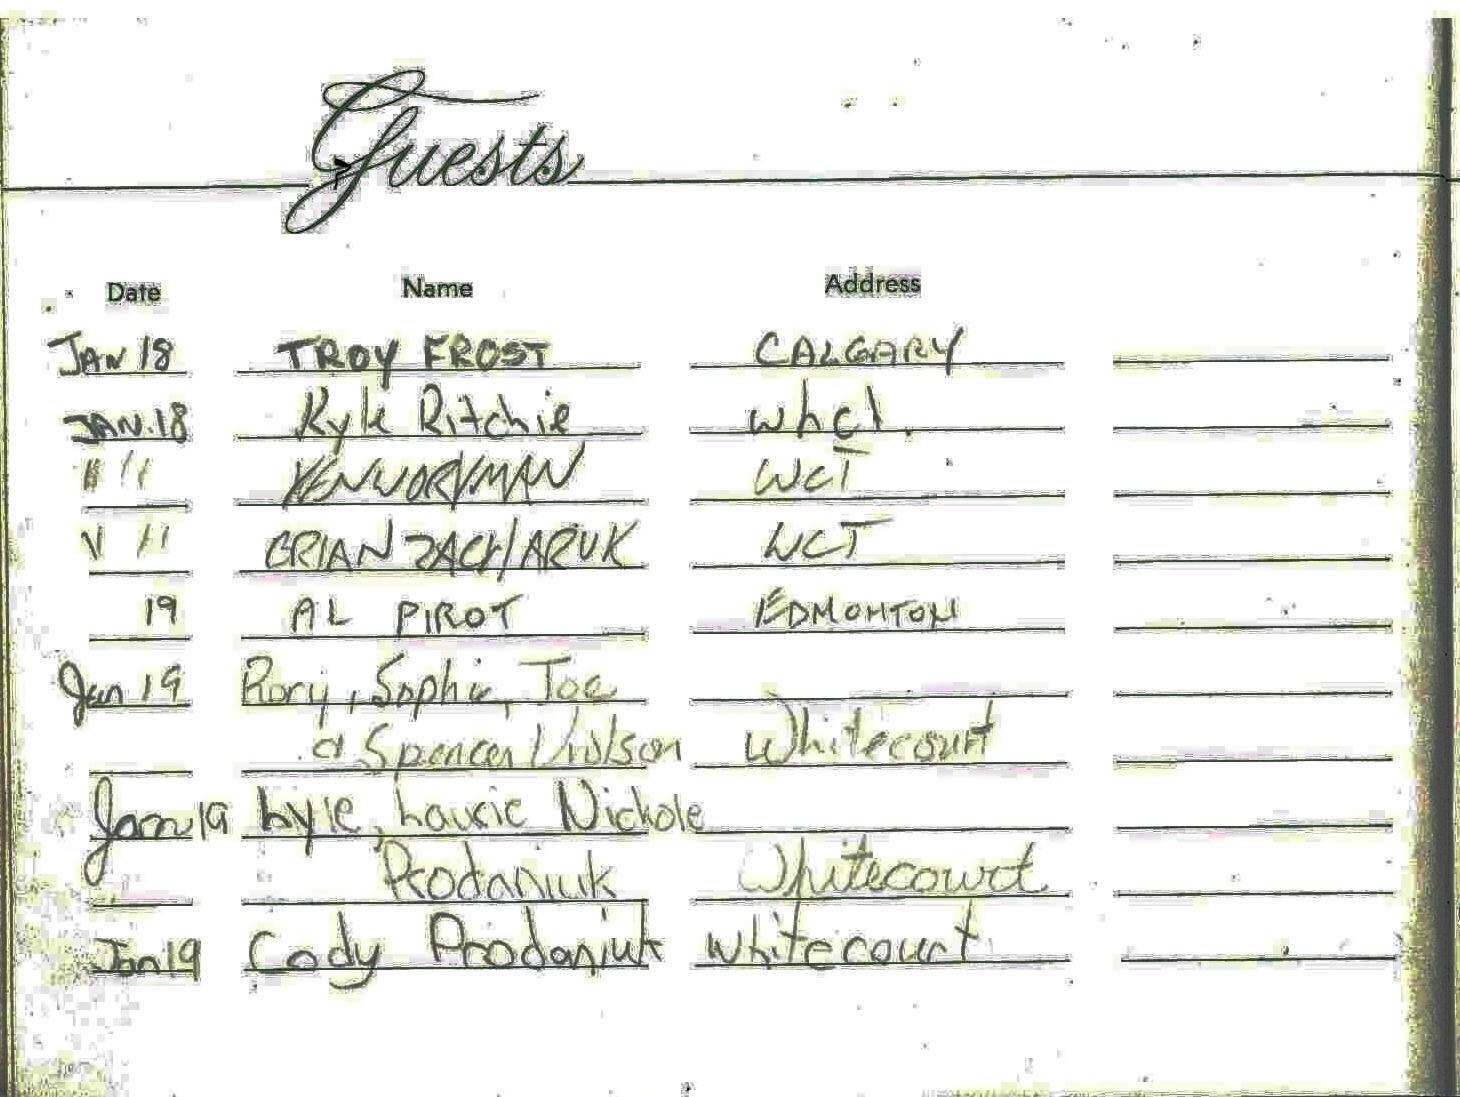 Guests
Date Name Address
JAN 18 TROY FROST CALGARY
JAN. 18 Kyle Ritchie whct.
" " KEN WORKMAN WCT
" " BRIAN ZACHARUK WCT
19 AL PIROT EDMONTON
Jan 19 Rory, Sophie, Joe
& Spencer Whitecourt
Jan 19 Lyle, Laurie Nickole
Prodaniuk Whitecourt
Jan 19 Cody Prodaniuk Whitecourt